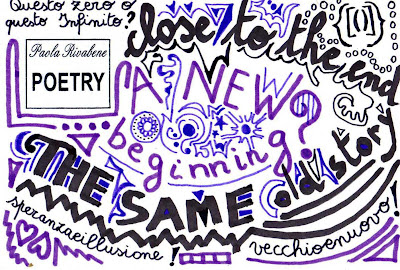 Questo zero o
questo Infinito.
Paola Rivabene
POETRY
close to the end
A NEW
beginning?
THE SAME
old story!
speranzaeillusione!
vecchioenuovo!